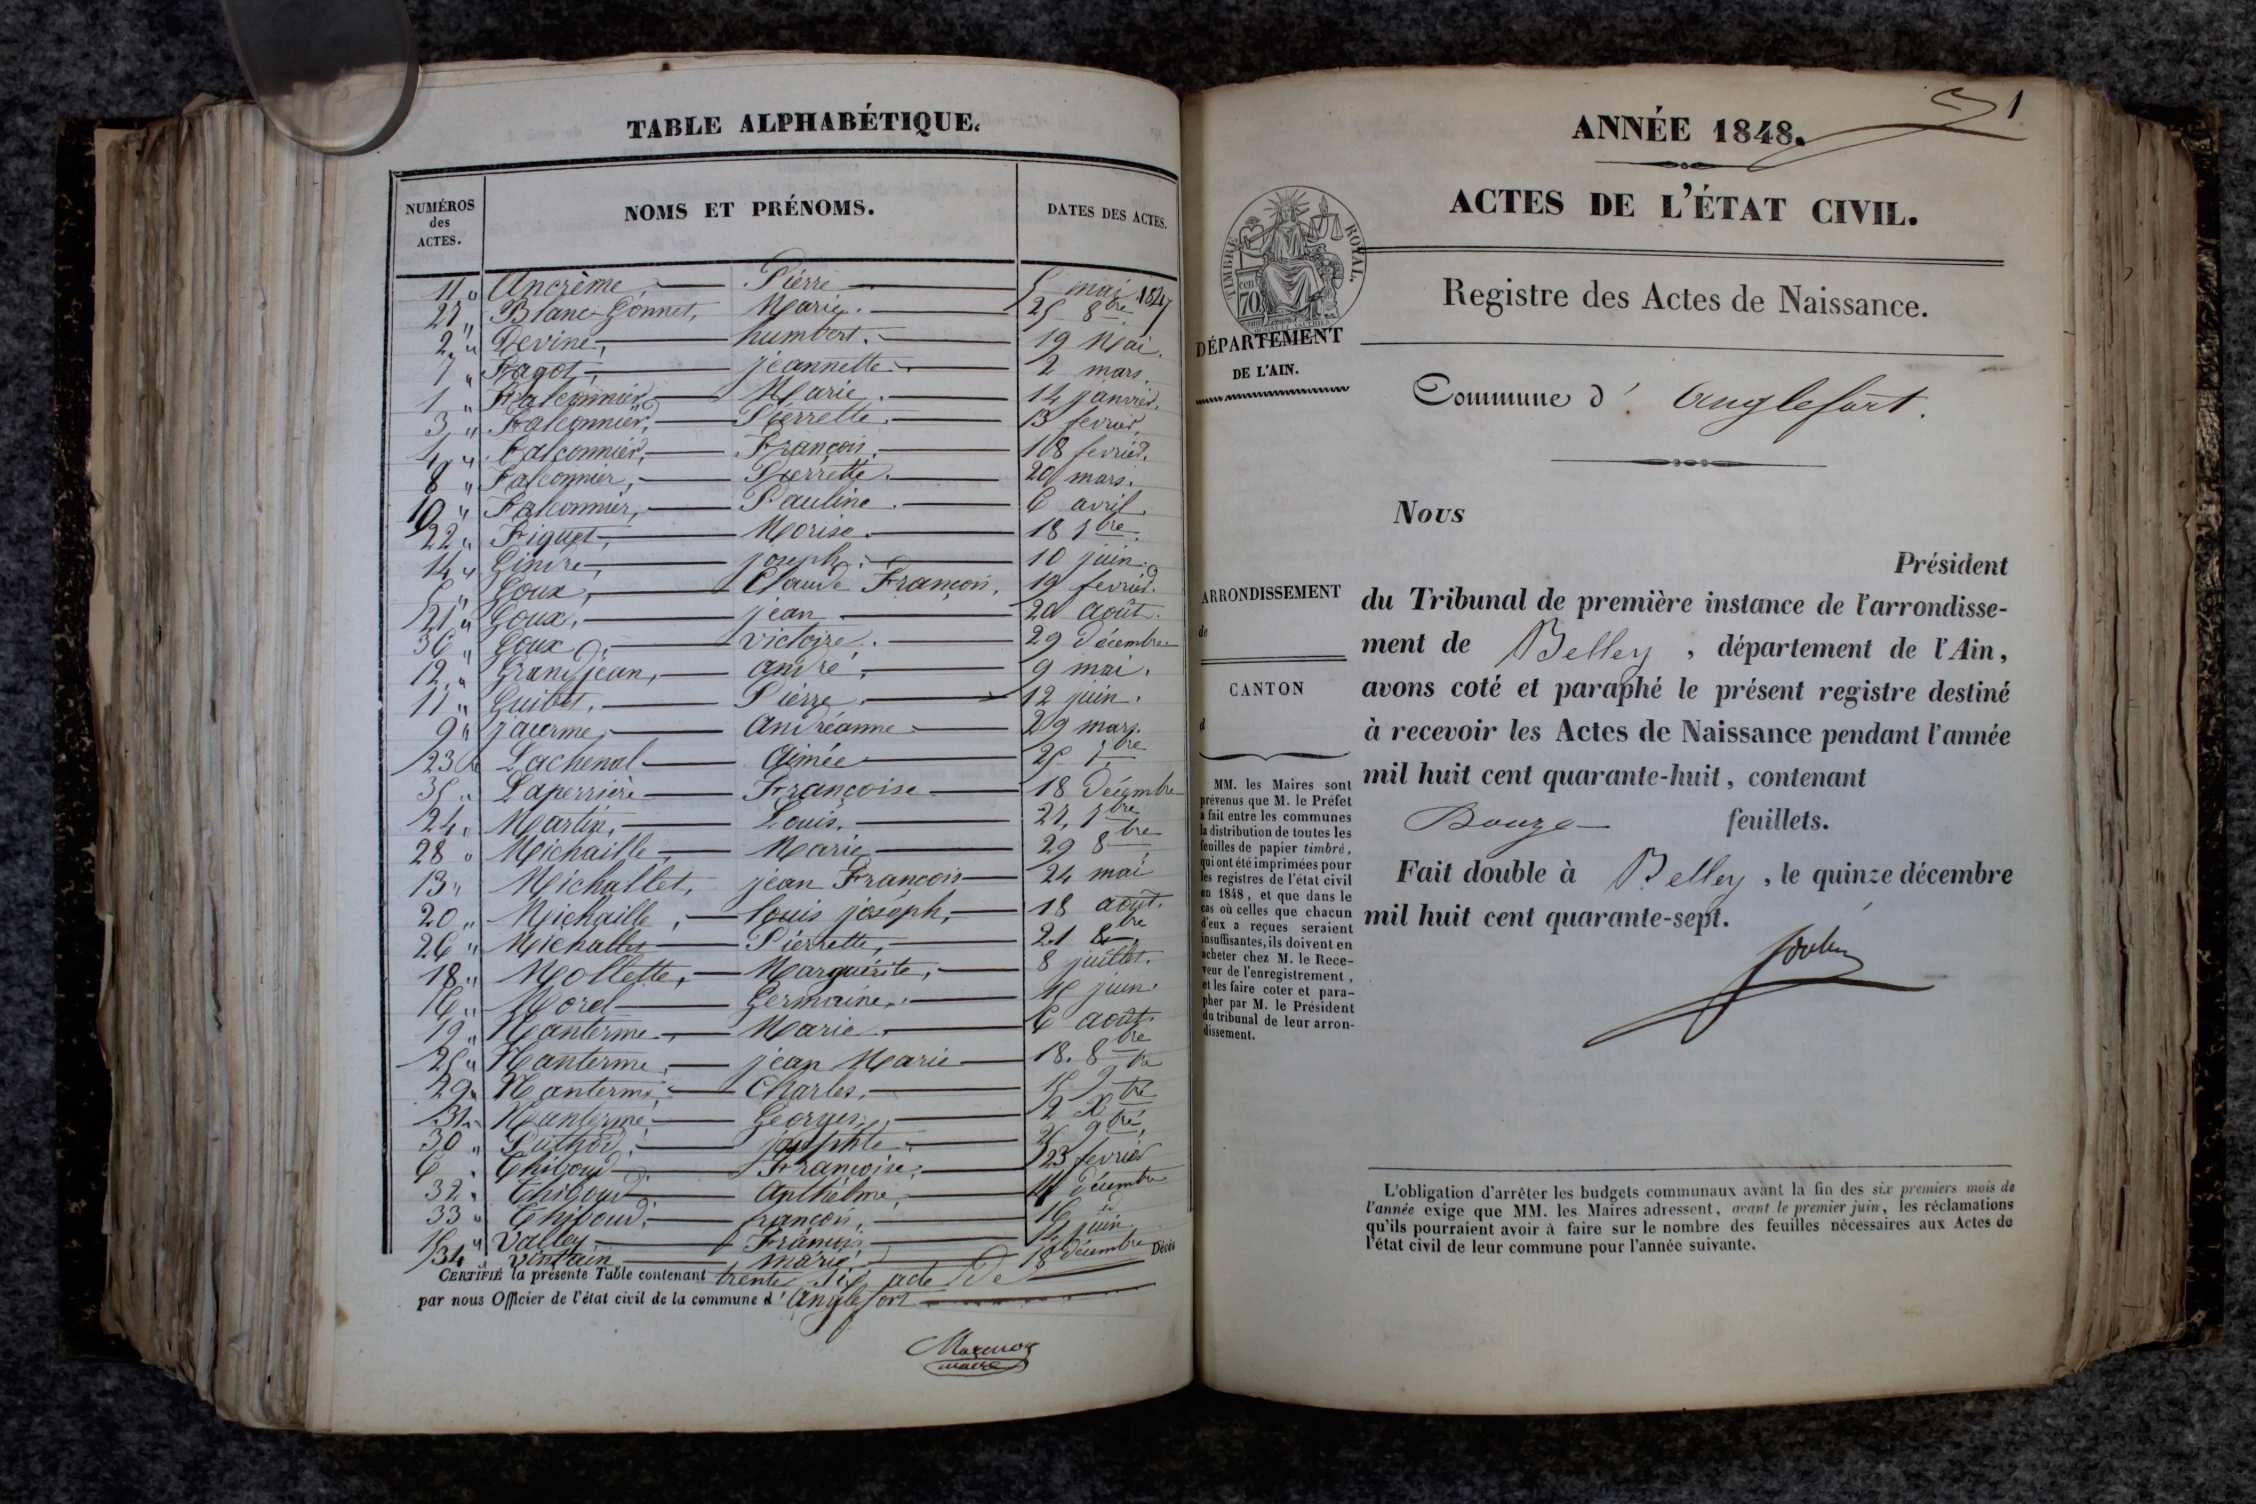 TABLE ALPHABÉTIQUE.
NUMÉROS des ACTES.
NOMS ET PRÉNOMS.
DATES DES ACTES.
11 " Ancrème, Pierre 5 mai 1847
27 " Blanc Gonnet, Marie. 25 8bre
2 " Devine, humbert. 19 Mai.
7 " Fagot, jeannette. 2 mars.
1 " Falconnier Marie. 14 janvier.
3 " Falconnier, Pierrette. 13 fevrier.
4 " Falconnier, François. 18 fevrier.
8 " Falconnier, Pierrette. 20 mars.
10 " Falconnier, Pauline. 6 avril.
22 " Friquet, Morise. 18 7bre.
14 " Ginvre, joseph. 10 juin.
5 " Goux, Claude François. 19 fevrier.
21 " Goux, jean 20 août.
36 " Goux, victoire. 29 décembre
12 " Grandjean, andré, 9 mai.
Guibet, Pierre. 12 juin.
9 " jacerme, andréanne 29 mars.
23 " Lachenal Aimée 25 7bre
35 " Laperrière Françoise 18 décembre
24 " Martin, Louis, 27, 7bre
28 " Michaille, Marie 29 8bre
13 " Michallet, jean François 24 mai
20 " Michaille, Louis joseph, 18 août.
26 " Michallet Pierrette, 21 8bre
18 " Mollette, Marguérite, 8 juillet.
16 " Morel Germaine, juin.
19 " Nanterme, Marie 6 août.
25 " Nanterme, jean Marie 18. 8bre
29 " Nanterme, Charles, 15 9bre
31 " Nanterme, Georges, 2 Xbre
30 " Puthod, josephte 9bre,
6 " Thiboud, Françoise, 23 fevrier
32 " Thiboud Anthelme, décembre
33 " Thiboud, françois, 16 d
15 " Valley François juin
34 " Vintain marie 18 décembre
CERTIFIÉ la présente Table contenant trente six acte De Décès
par nous Officier de l'état civil de la commune d' Anglefort
maire
1
ANNÉE 1848.
ACTES DE L'ÉTAT CIVIL.
TIMBRE ROYAL.
cen 70
Registre des Actes de Naissance.
DÉPARTEMENT
DE L'AIN.
Commune d' Anglefort.
Nous
Président
ARRONDISSEMENT
de
CANTON
d
du Tribunal de première instance de l'arrondisse-
ment de Belley, département de l'Ain,
avons coté et paraphé le présent registre destiné
à recevoir les Actes de Naissance pendant l'année
mil huit cent quarante-huit, contenant
Douze feuillets.
Fait double à Belley, le quinze décembre
mil huit cent quarante-sept.
MM. les Maires sont
prévenus que M. le Préfet
a fait entre les communes
la distribution de toutes les
feuilles de papier timbré,
qui ont été imprimées pour
les registres de l'état civil
en 1848, et que dans le
cas où celles que chacun
d'eux a reçues seraient
insuffisantes, ils doivent en
acheter chez M. le Rece-
veur de l'enregistrement,
et les faire coter et para-
pher par M. le Président
du tribunal de leur arron-
dissement.
L'obligation d'arrêter les budgets communaux avant la fin des six premiers mois de
l'année exige que MM. les Maires adressent, avant le premier juin, les réclamations
qu'ils pourraient avoir à faire sur le nombre des feuilles nécessaires aux Actes de
l'état civil de leur commune pour l'année suivante.